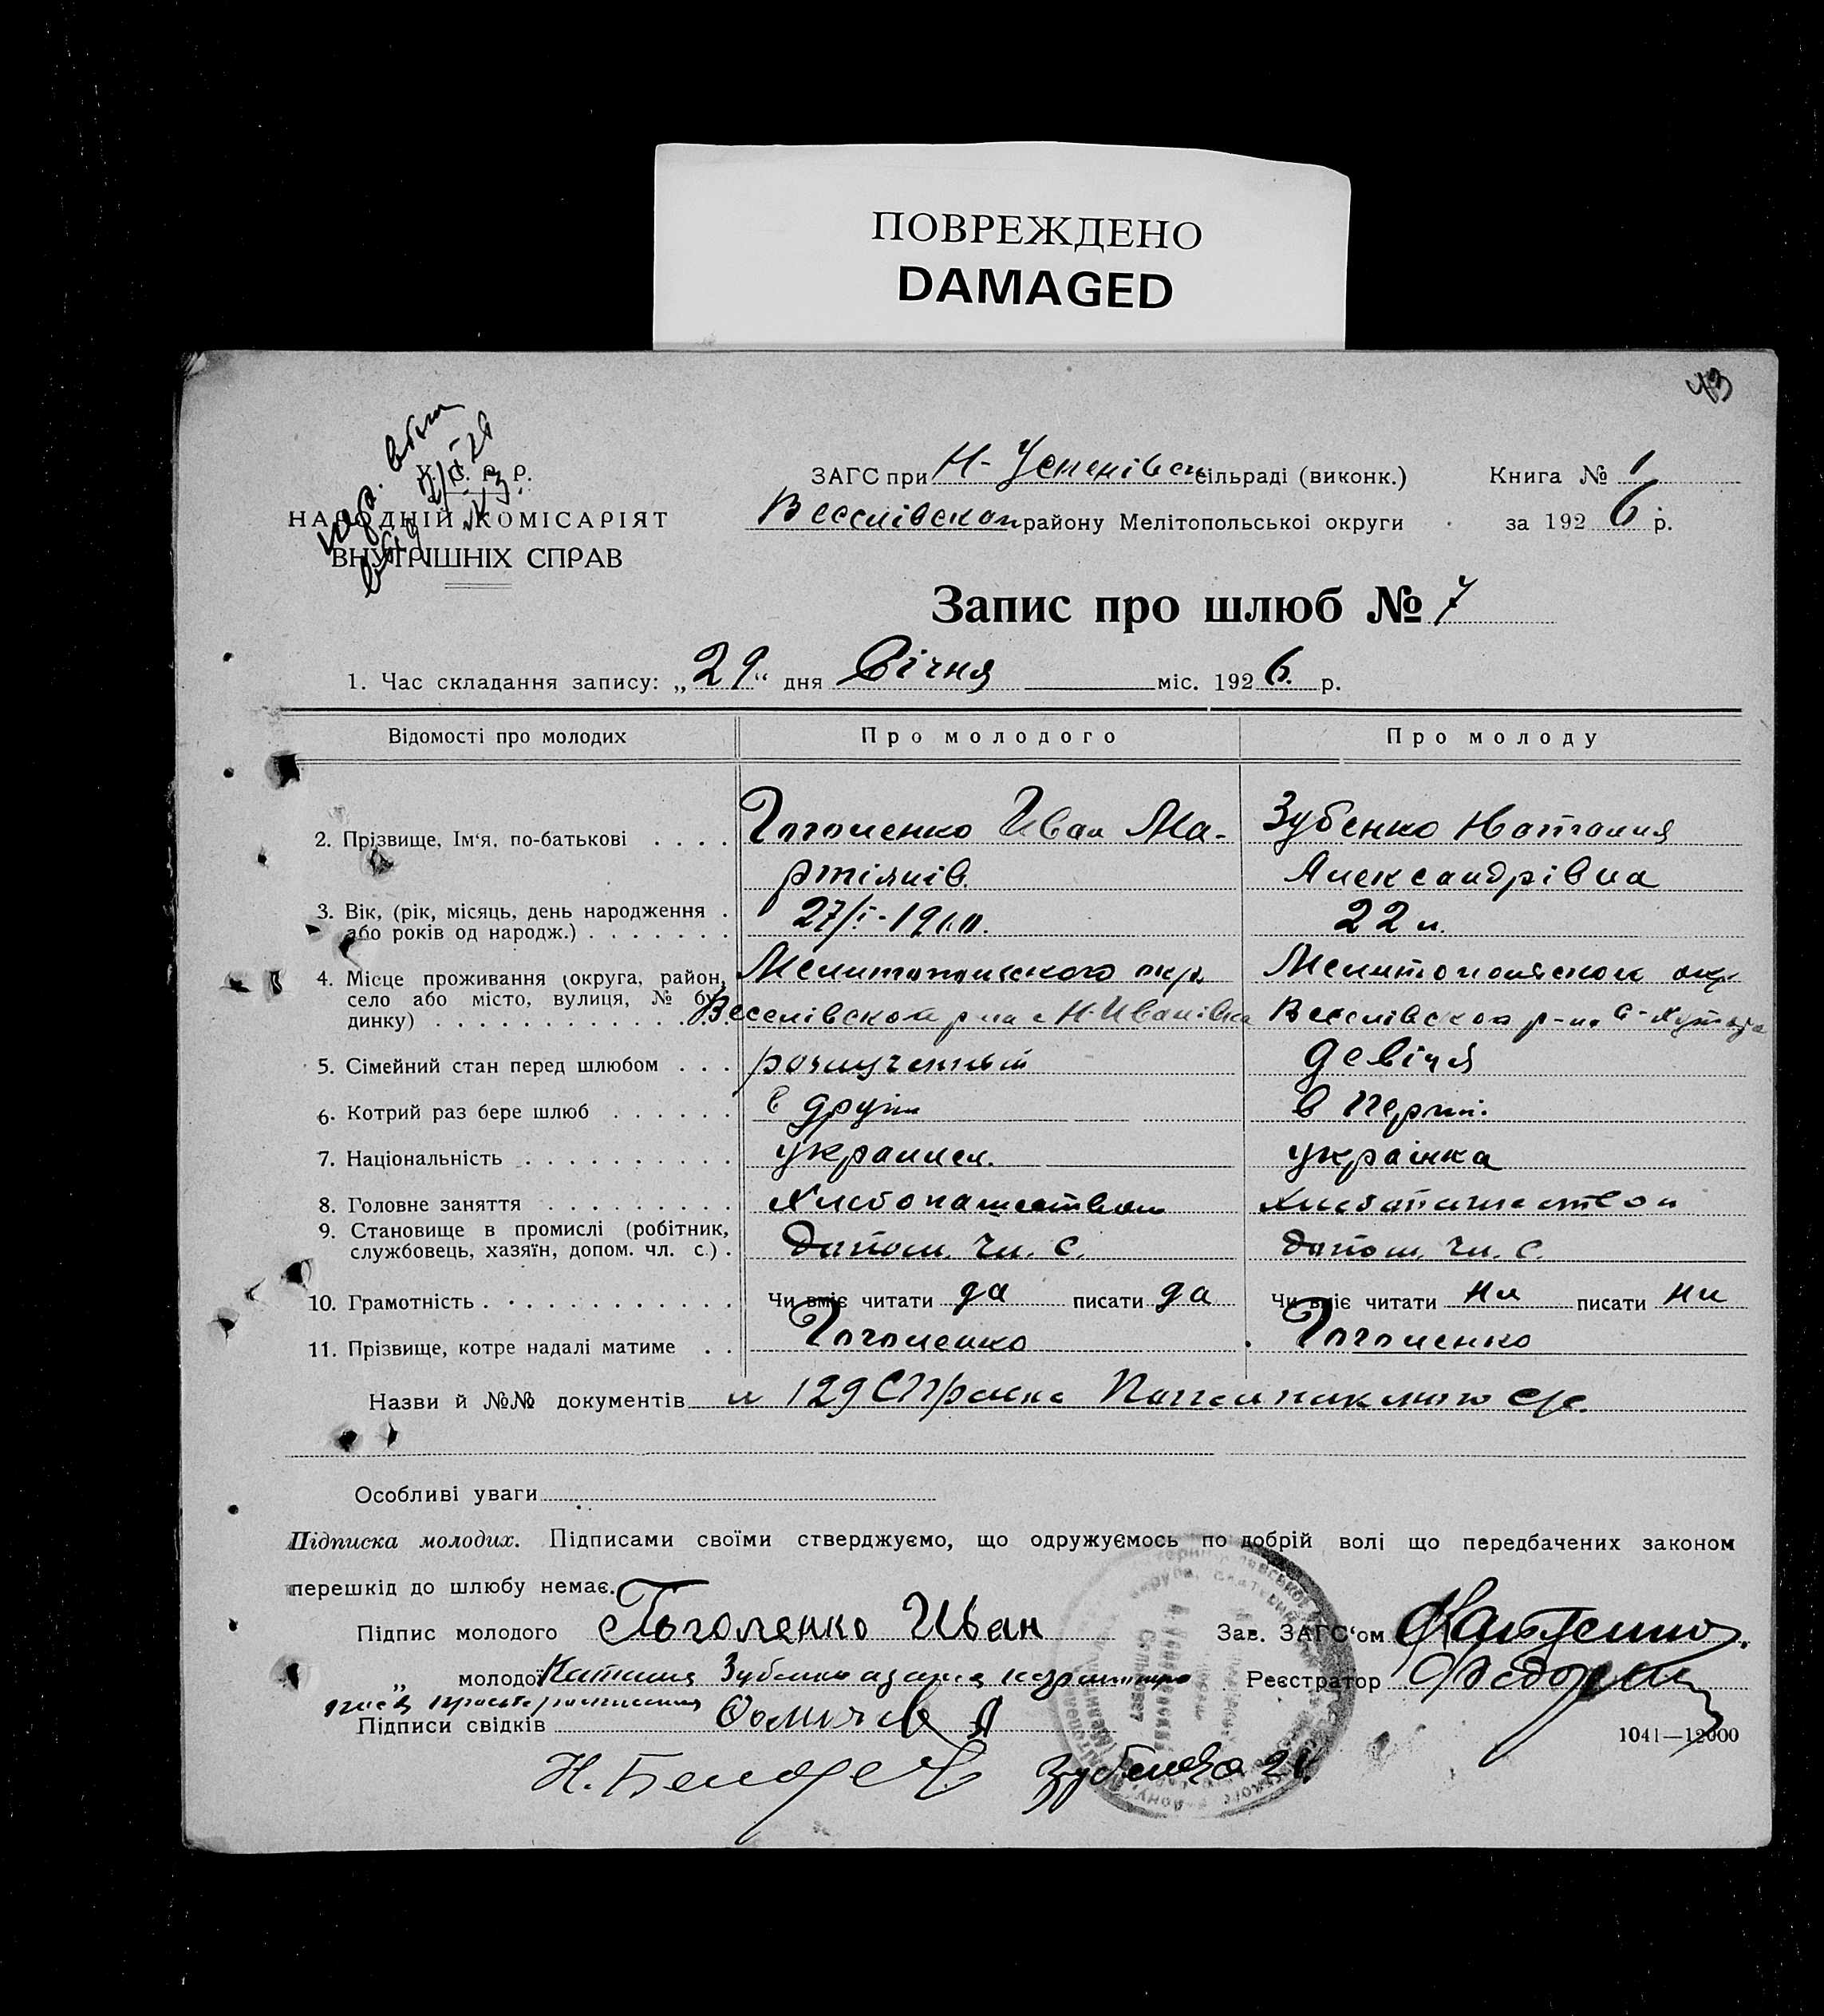 ПОВРЕЖДЕНО
DAMAGED
43
У. С. Р. Р.
НАРОДНІЙ КОМІСАРІЯТ
ВНУТРІШНІХ СПРАВ
ЗАГС при Н-Успенівск сільраді (виконк.) Книга № 1
Веселівском району Мелітопольської округи за 1926 р.
Запис про шлюб № 7
1. Час складання запису: „29“ дня Січня міс. 1926. р.
Відомості про молодих Про молодого Про молоду
2. Прізвище, Ім'я, по-батькові . . . . Гоголенко Иван Ма- Зубенко Наталия
ртіянів. Александрівна
3. Вік, (рік, місяць, день народження .
або років од народж.) . . . . . . . 27/I-19 22 л.
4. Місце проживання (округа, район, Мелитопольского окр. Мелитопольской окр
село або місто, вулиця, № бу-
динку) . . . . . . . . . . . . . Веселівской р-на с Н-Иванівка Веселівской р-на
5. Сімейний стан перед шлюбом . . . розлученный девіця
6. Котрий раз бере шлюб . . . . . . в другий в Перш.
7. Національність . . . . . . . . . . українец. українка
8. Головне заняття . . . . . . . . . Хлебопашеством Хлебопашеством
9. Становище в промислі (робітник,
службовець, хазяїн, допом. чл. с.) . Допом. Чл. С. Допом. Чл. С.
10. Грамотність . . . . . . . . . . . . Чи вміє читати да писати да Чи вміє читати ни писати ни
11. Прізвище, котре надалі матиме . . Гоголенко Гоголенко
Назви й №№ документів № 129 Справка
Особливі уваги
Підписка молодих. Підписами своїми стверджуємо, що одружуємось по добрій волі що передбачених законом
перешкід до шлюбу немає.
Підпис молодого Гоголенко Иван Зав. ЗАГС'ом
„ молодої Наталия Зубенко а за нея неграмотную Реєстратор
Підписи свідків
1041—12000
Зубенко